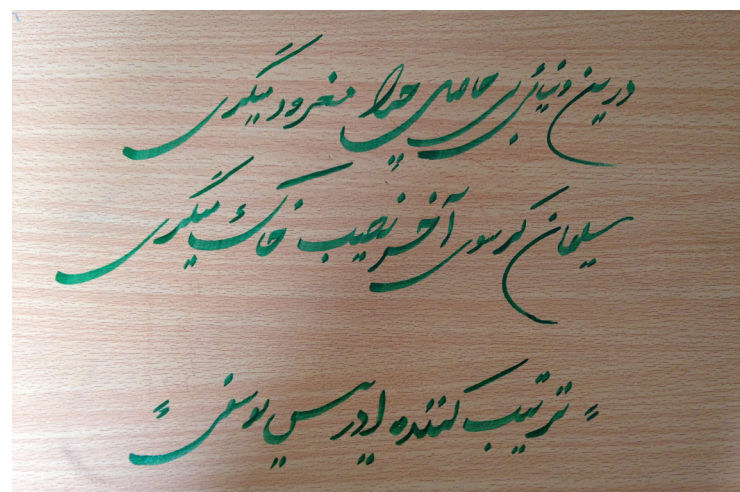 درین دنیائی بی حاصل چرا مغرور میگردی
سلیمان گر شوی آخر نصیب خاک میگردی
ترتیب کننده ادریس یوسفی